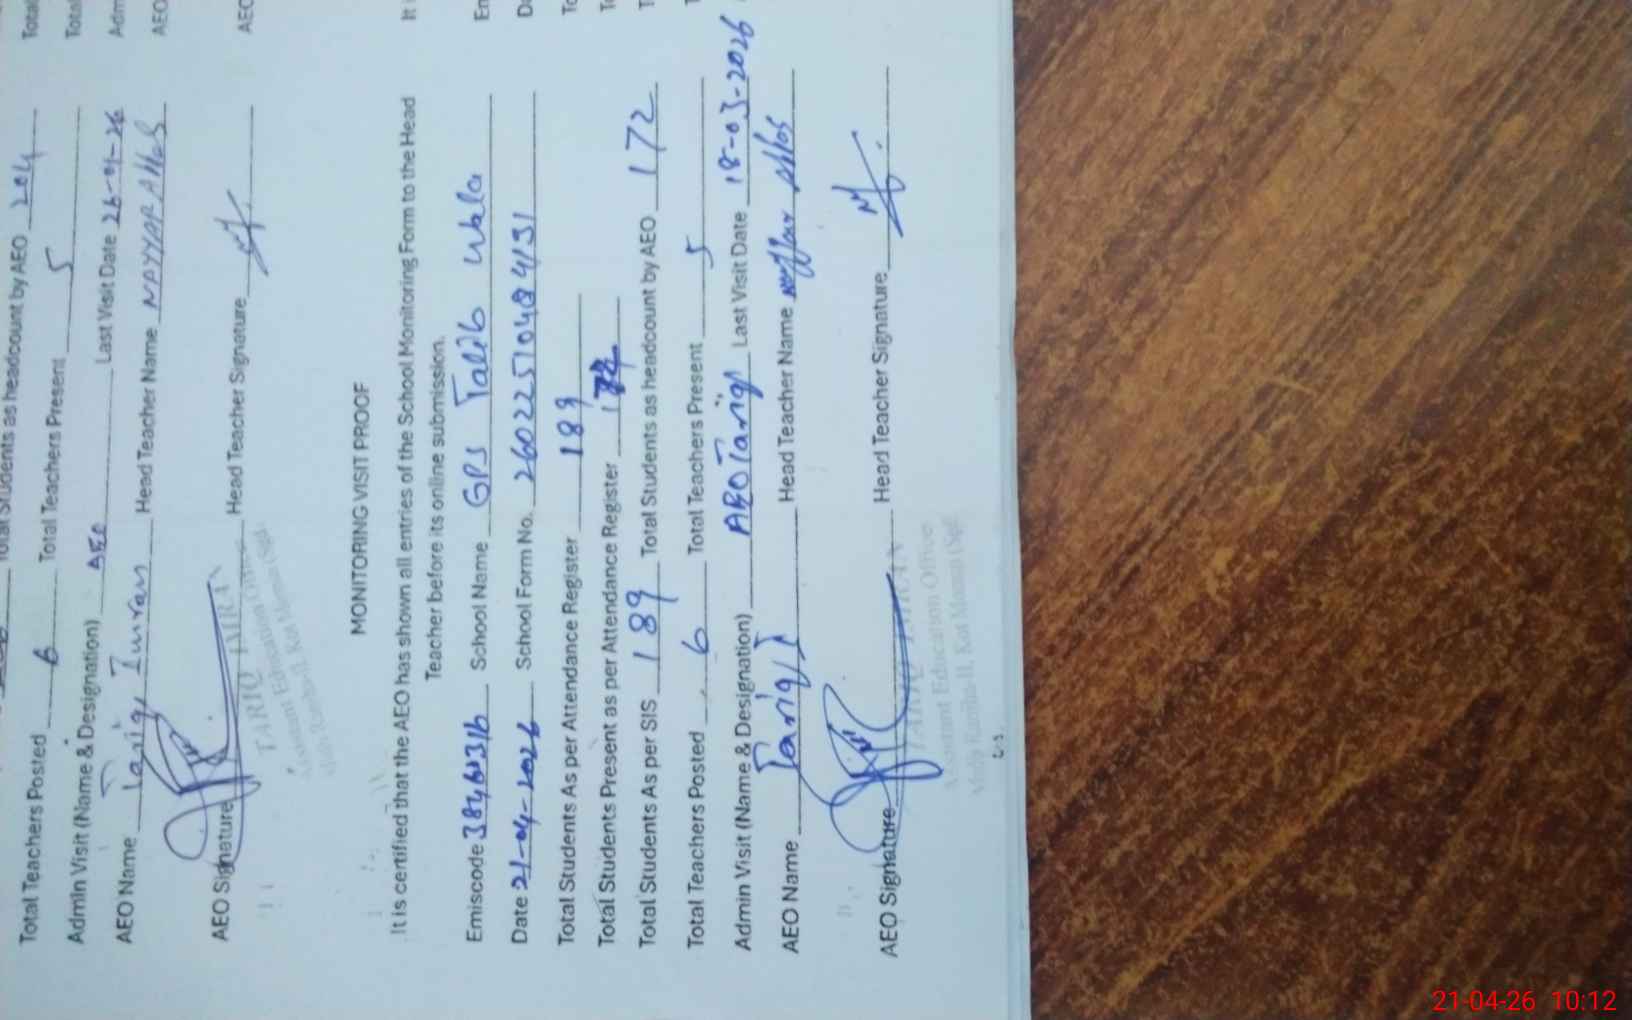 Total Students as headcount by AEO 204
Total Teachers Posted 6 Total Teachers Present 5
Admin Visit (Name & Designation) AEO Last Visit Date 26-01-26
AEO Name Tariq Imran Head Teacher Name NAYYAR ABBAS
AEO Signature Head Teacher Signature
TARIQ IMRAN
Assistant Education Officer
MONITORING VISIT PROOF
It is certified that the AEO has shown all entries of the School Monitoring Form to the Head
Teacher before its online submission.
Emiscode School Name GPS Talib Wala
Date 21-04-2026 School Form No.
Total Students As per Attendance Register 189
Total Students Present as per Attendance Register
Total Students As per SIS 189 Total Students as headcount by AEO 172
Total Teachers Posted 6 Total Teachers Present 5
Admin Visit (Name & Designation) AEO Tariq Last Visit Date 18-03-2026
AEO Name Tariq I Head Teacher Name
AEO Signature Head Teacher Signature
TARIQ IMRAN
Assistant Education Officer
Total
Total
Adm
AEO
AEO
It i
Em
Da
To
To
21-04-26 10:12